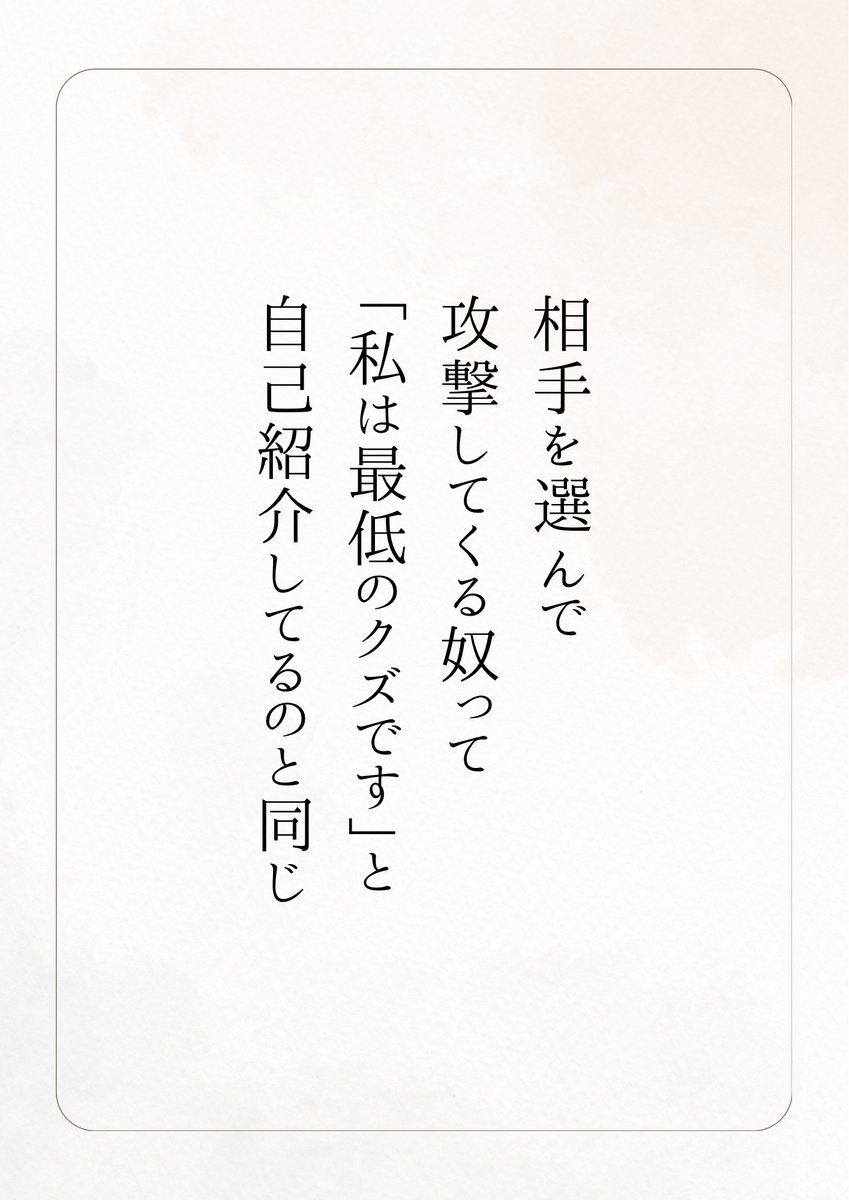 相手を選んで
攻撃してくる奴って
「私は最低のクズです」と
自己紹介してるのと同じ